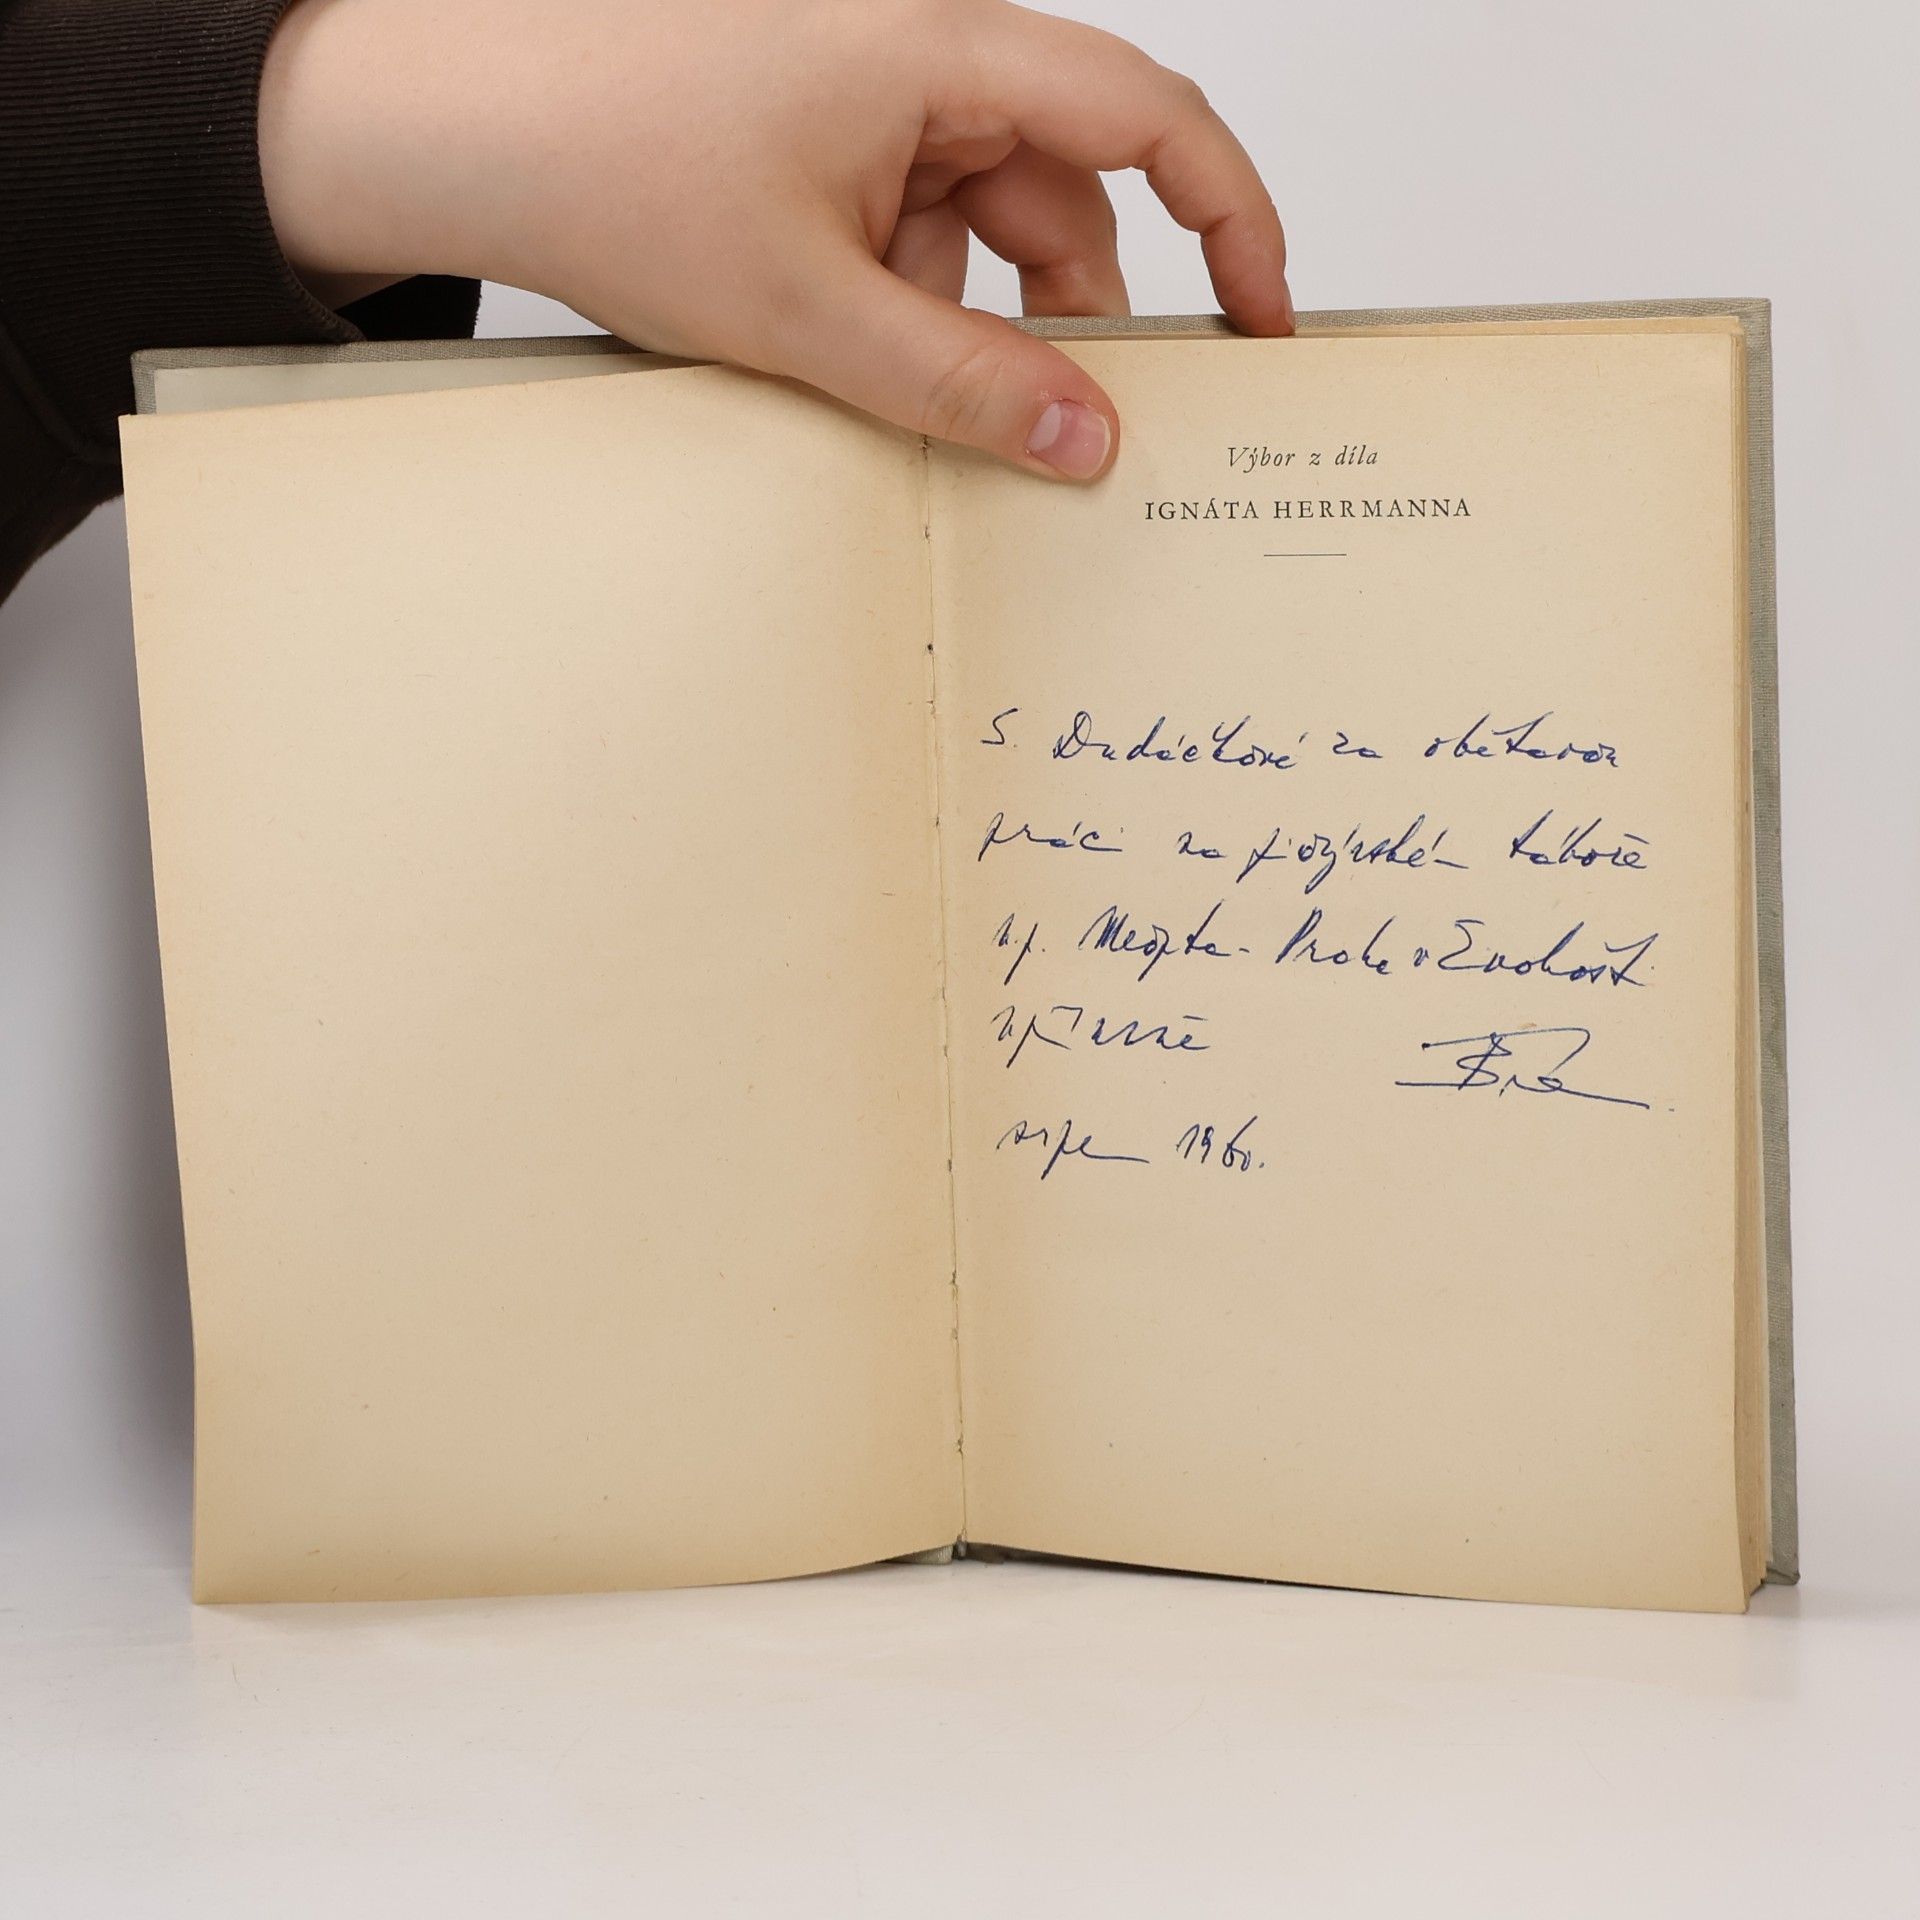 Výbor z díla
IGNÁTA HERRMANNA
S. Dudáčkové za obětavou
práci na pionýrském táboře
n.p. Meopta - Praha v
srpen 1960.